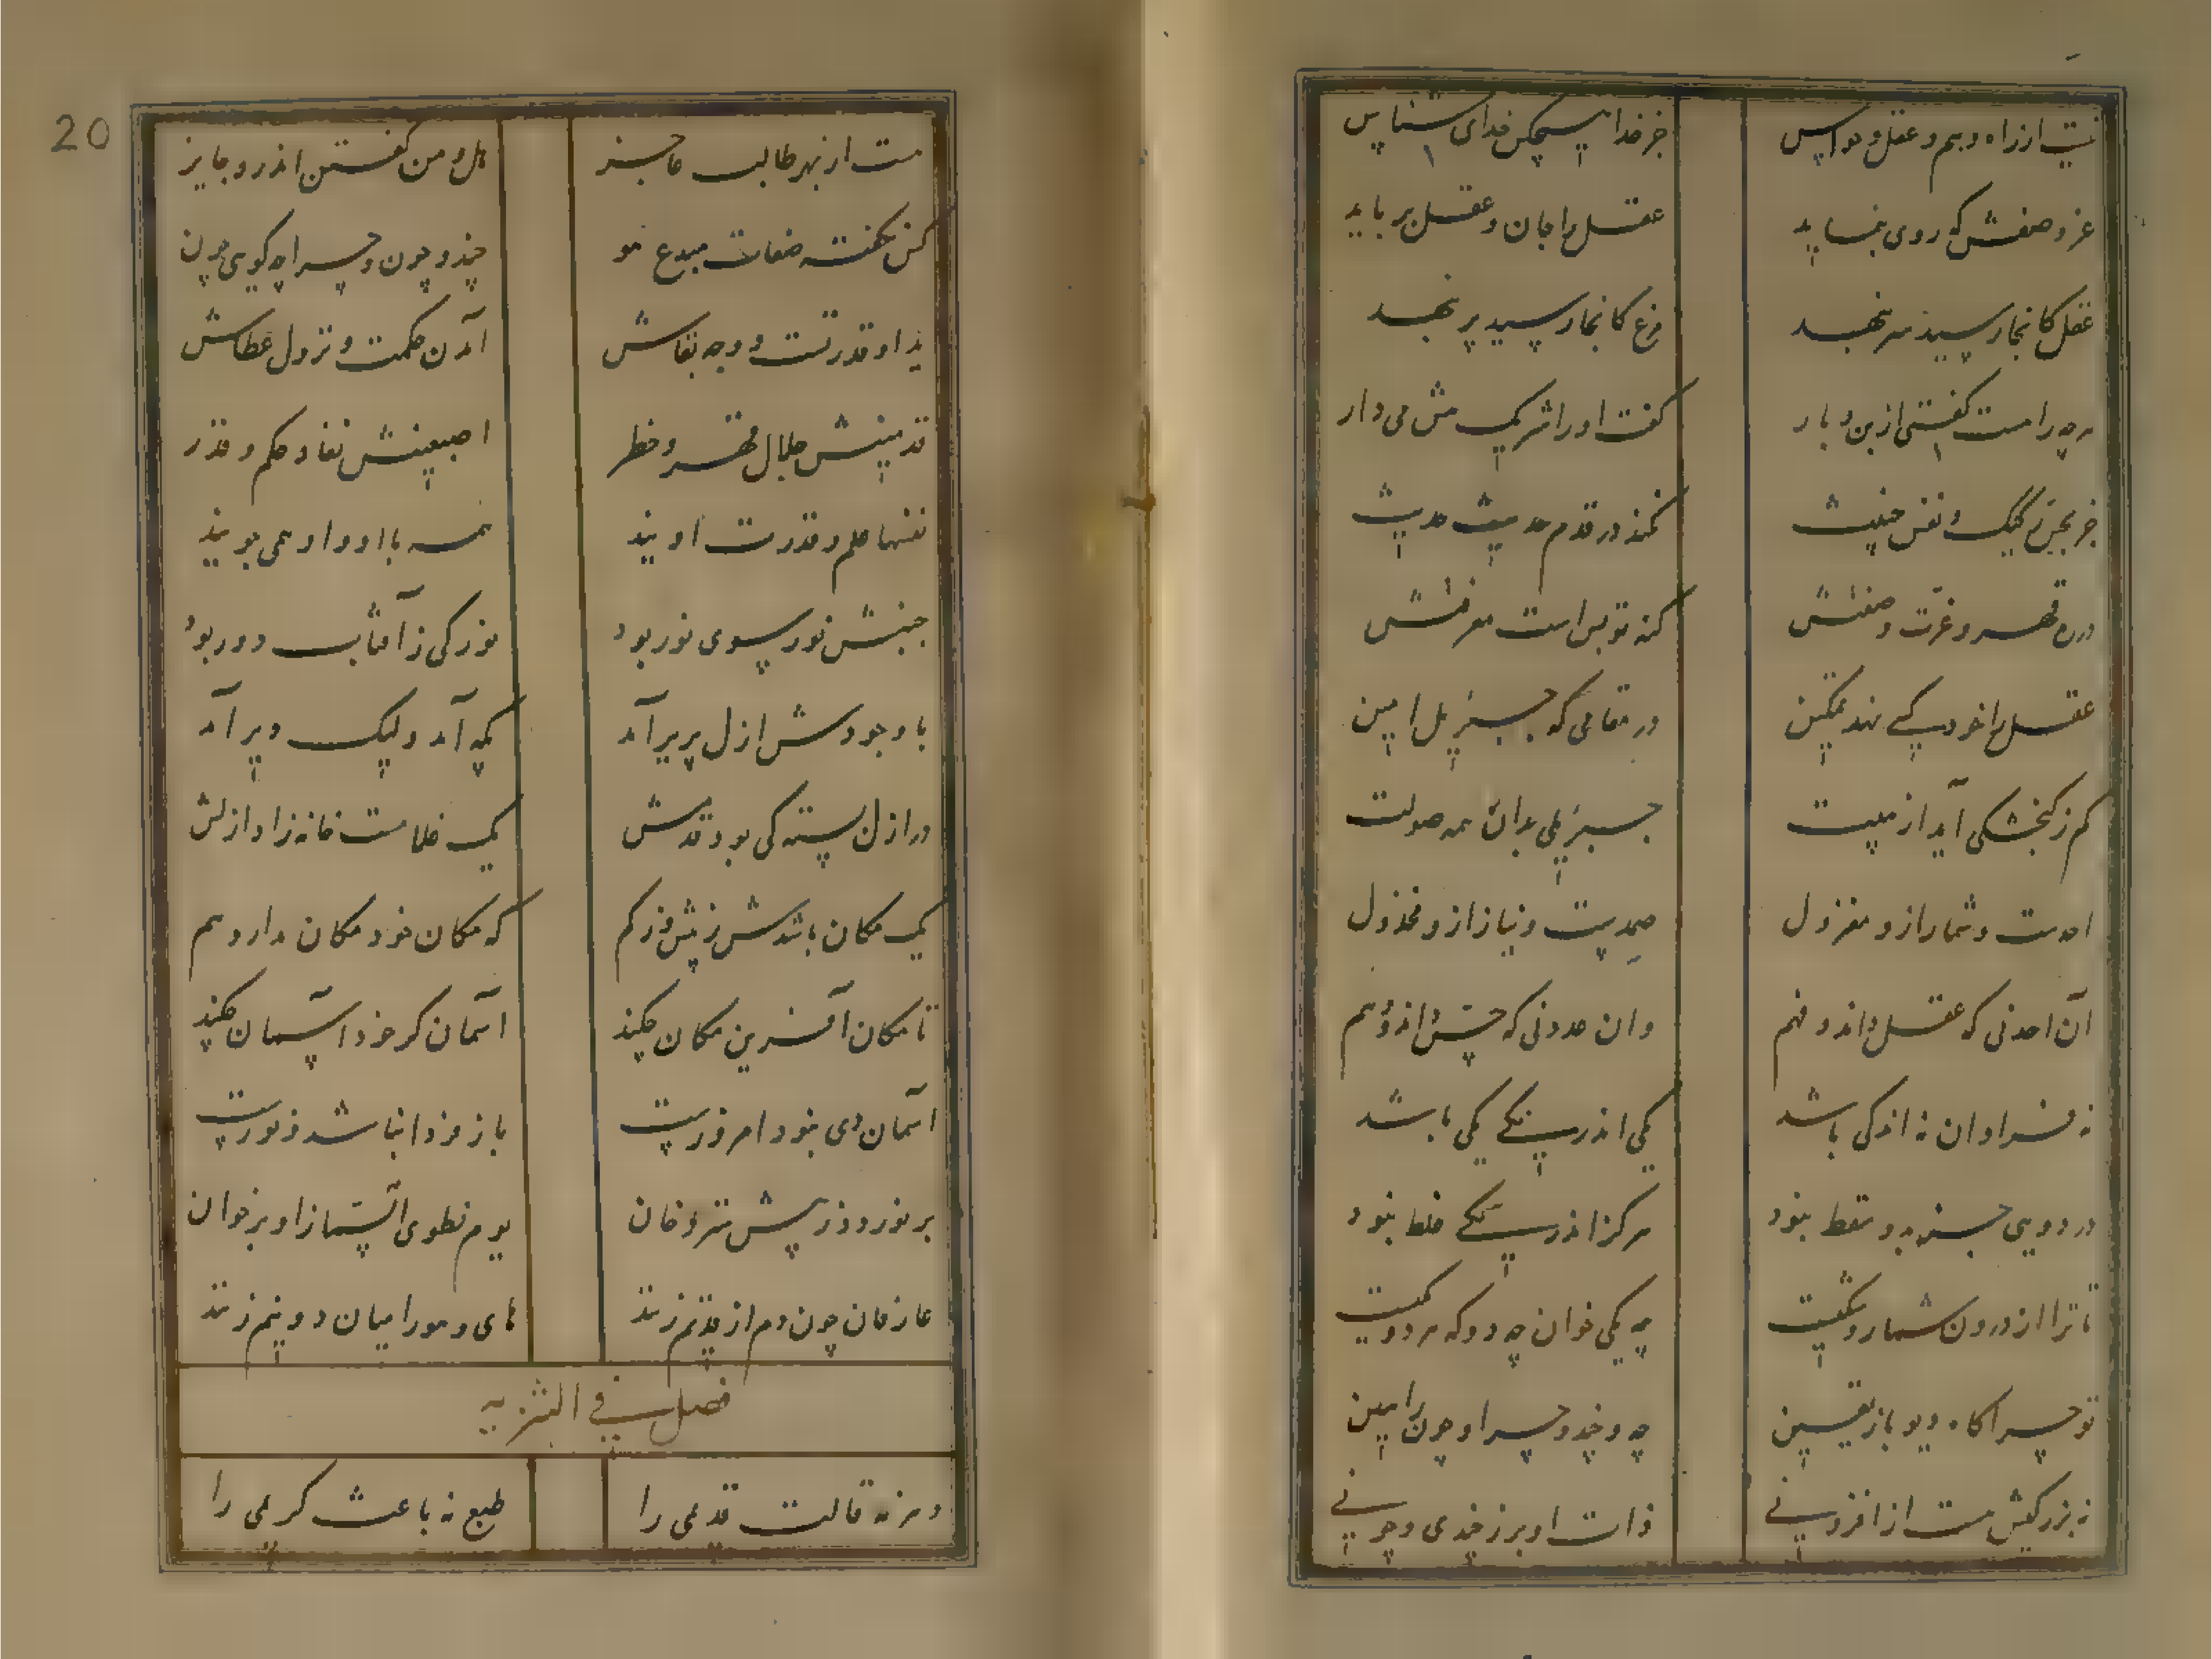 نیست از راه وهم و عقل و حواس جز خدا هیچکس خدای شناس
عز وصفش که روی بنماید عقل را جان و عقل برباید
عقل کانجا رسید سر بنهد مرغ کانجا رسید پر بنهد
هرچه را هست گفتی از بن و بار گفت او را شریک هش می دار
جز بحس رکیک و نفس خبیث نکند در قدم حدیث حدیث
در ره قهر و عزت صفتش کنه تو بس است معرفتش
عقل را خود کسی نهد تمکین در مقامی که جبرئیل امین
کم ز گنجشکی آید از هیبت جبرئیلی بدان همه صولت
احدست و شمار ازو معزول صمدیست و نیاز ازو مخذول
آن احد نی که عقل داند و فهم وان صمد نی که حس شناسد و وهم
نه فراوان نه اندکی باشد یکی اندر یکی یکی باشد
در دویی جز بد و سقط نبود هرگز اندر یکی غلط نبود
تا ترا از درون شمار و شکیست چه یکی خوان چه دو که هر دو یکیست
تو چراگاه دیو باز یقین چه و چند و چرا و چون را بین
نه بزرگیش هست از افزونی ذات او برز چندی و چونی
هست از بهر طالب عاجز هل و من گفتن اندرو جایز
کس نگفته صفات مبدع هو چند و چون و چرا چه گویی چون
ید او قدرتست و وجه بقاش آمدن حکمت و نزول عطاش
قدمینش جلال قهر و خطر اصبعینش نفاد حکم و قدر
نفسها علم و قدرت اویند همه با او و او همی جویند
جنبش نور سوی نور بود نور کی ز آفتاب دور بود
با وجودش ازل پریر آمد بگه آمد ولیک دیر آمد
در ازل بسته کی بود قدمش یک غلامست خانه زاد ازلش
کی مکان باشدش ز بیش و ز کم که مکان خود مکان ندارد هم
تا مکان آفرین مکان چکند آسمان گر خود آسمان چکند
آسمان دی نبود امروزست باز فردا نباشد و نورست
بر نوردد ز پیش ستر دخان یوم نطوی السما ازو برخوان
عارفان چون دم از قدیم زنند های و هو را میان دو نیم زنند
فصل فی التنزیه
دهر نه قالب قدیمی را طبع نه باعث کریمی را
20